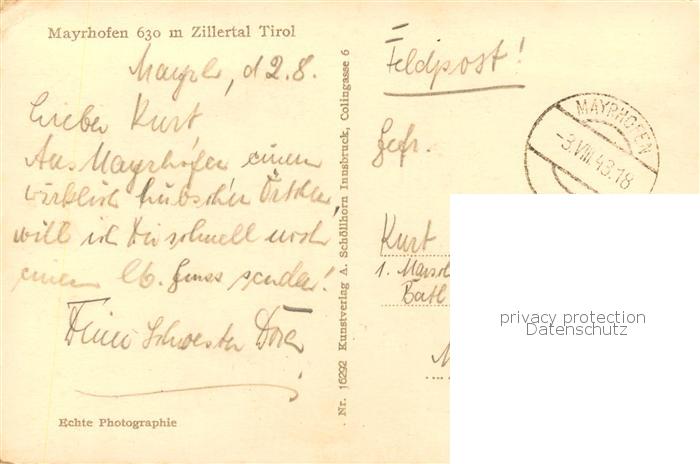 Mayrhofen 630 m Zillertal Tirol
Mayrh, d 2.8.
Lieber Kurt,
Aus Mayrhofen einem
wirklich hübschen Örtchen,
will ich Dir schnell noch
einen lb. Gruss senden!
Deine Schwester Dora
Echte Photographie
Nr. 16292 Kunstverlag A. Schöllhorn Innsbruck, Colingasse 6
Feldpost!
MAYRHOFEN
-3.VIII.43.18
Gefr.
Kurt
1. Marsch
Batl
M
privacy protection
Datenschutz